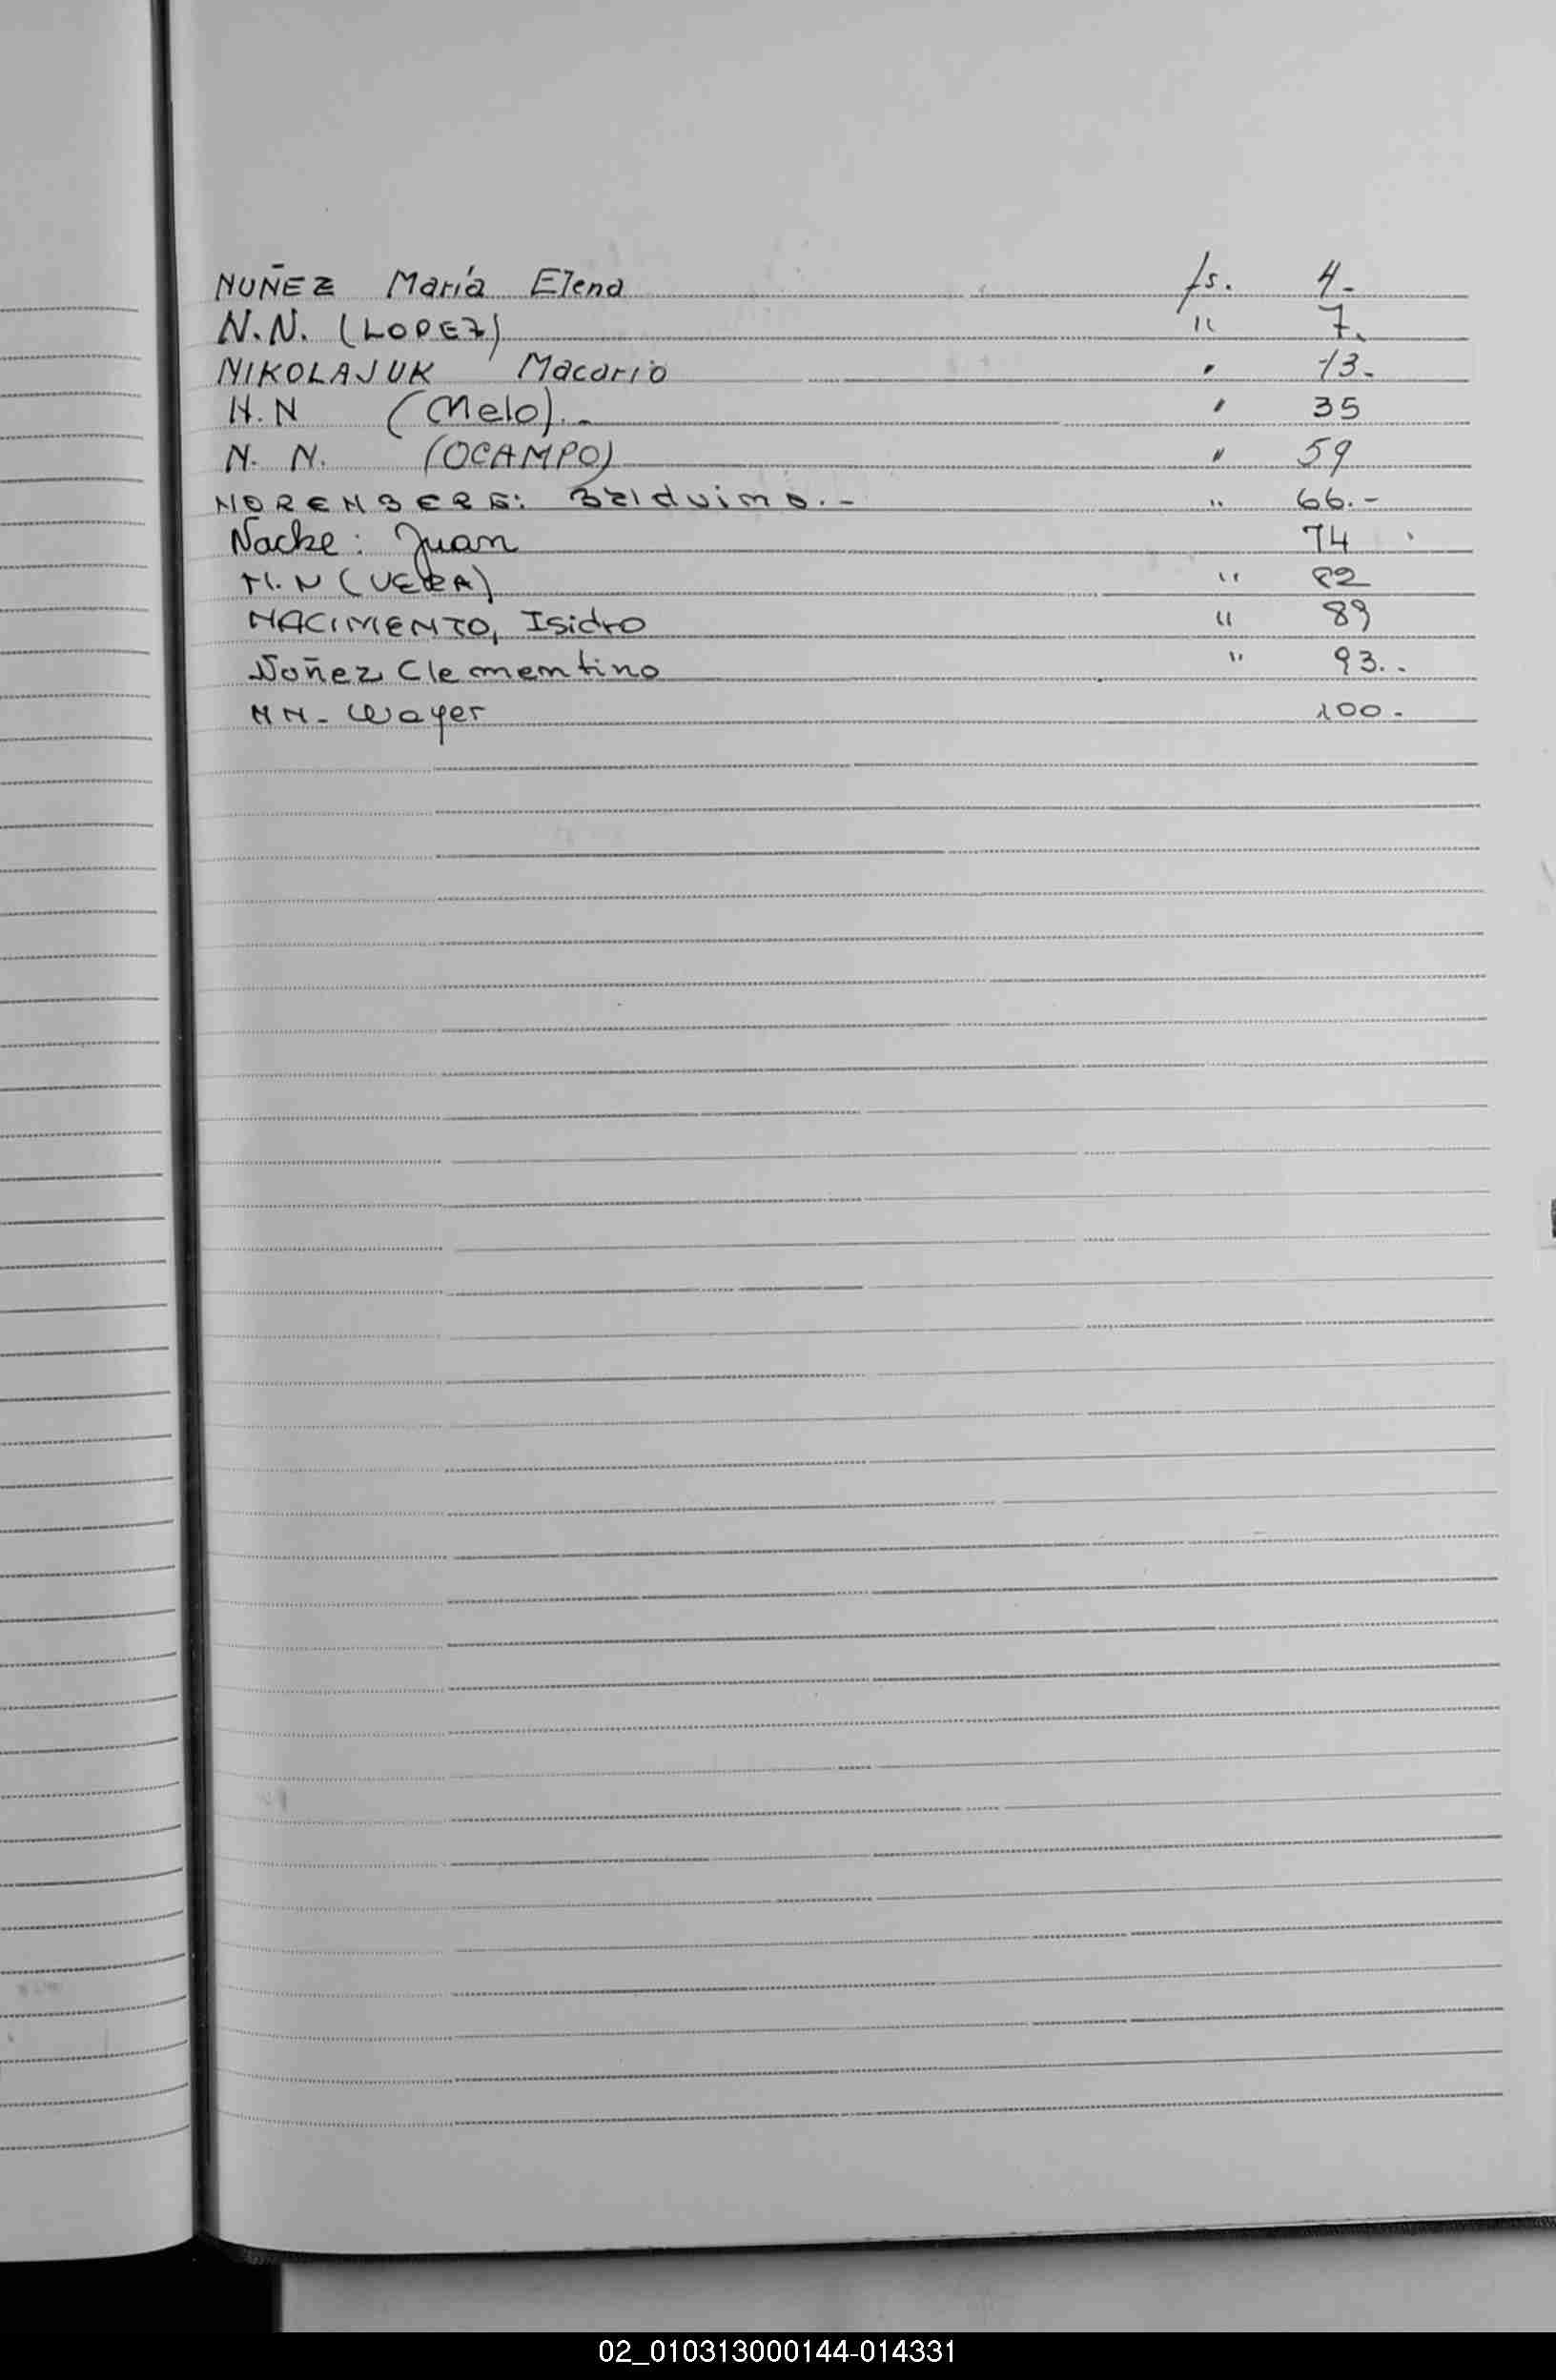 NUÑEZ María Elena fs. 4.-
N.N. (LOPEZ) " 7.
NIKOLAJUK Macario " 13.-
N.N (Melo).- " 35
N. N. (OCAMPO) " 59
NORENBERG: Balduino.- " 66.-
Nacke: Juan 74
N.N (VERA) " 82
NACIMENTO, Isidro " 89
Nuñez Clementino " 93..
NN- Wayer 100.-
02_010313000144-014331